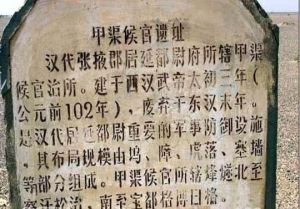 甲渠候官遗址
汉代张掖郡居延都尉府所辖甲渠
候官治所。建于西汉武帝太初三年（
公元前102年），废弃于东汉末年。
是汉代居延都尉重要的军事防御设施
，其布局规模由坞、障、虎落、墓墙
等部分组成。甲渠候官所辖烽燧北至
察汗松治，南至宝都格博日格。